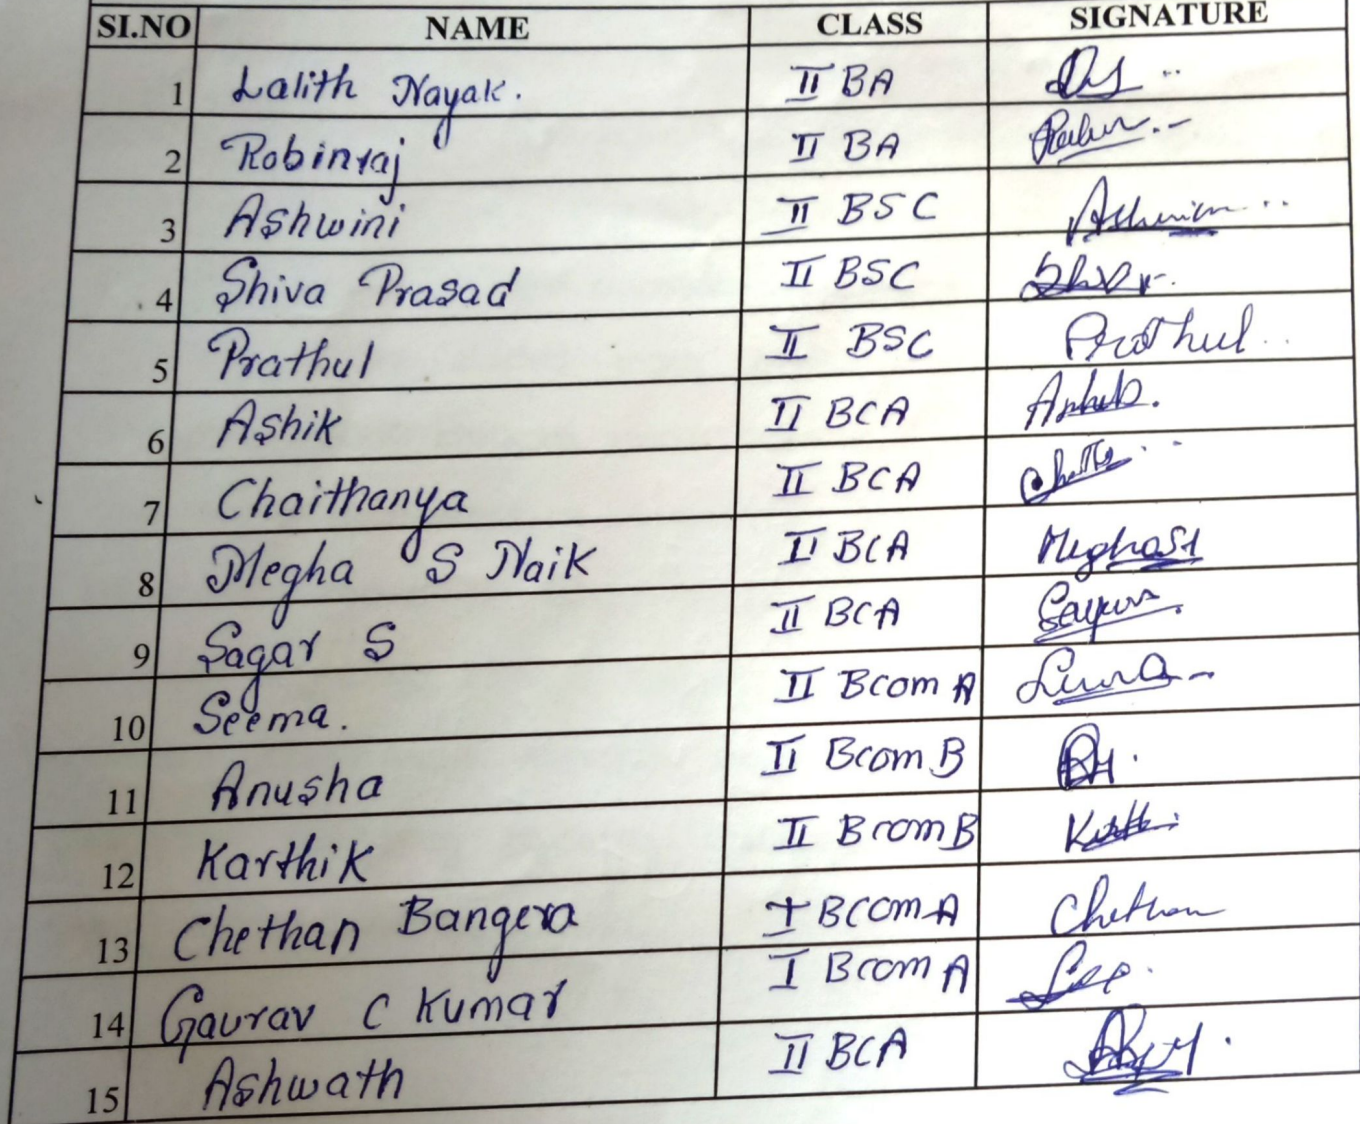 SI.NO NAME CLASS SIGNATURE
1 Lalith Nayak. II BA
2 Robinraj II BA
3 Ashwini II BSC
4 Shiva Prasad II BSC
5 Prathul II BSC Prathul
6 Ashik II BCA
7 Chaithanya II BCA
8 Megha S Naik II BCA
9 Sagar S II BCA
10 Seema. II Bcom A
11 Anusha II Bcom B
12 Karthik II Bcom B
13 Chethan Bangera I BComA Chethan
14 Gaurav C Kumar I Bcom A
15 Ashwath II BCA